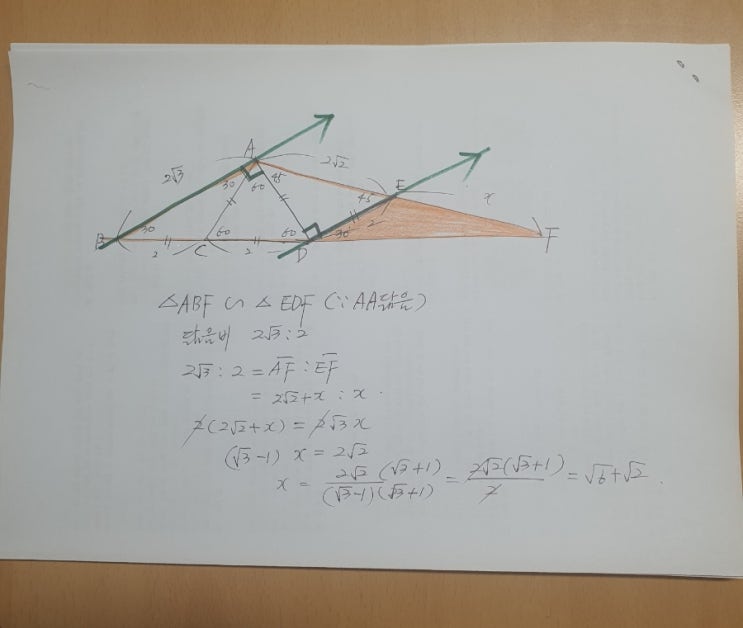 A
2√3
2√2
30
60
45
45
E
x
B
30
2
C
60
2
60
D
30
2
F
△ABF ∽ △EDF (∵ AA닮음)
닮음비 2√3 : 2
2√3 : 2 = AF : EF
= 2√2+x : x .
2(2√2+x) = 2√3 x
(√3-1) x = 2√2
x = 2√2 (√3+1) / (√3-1)(√3+1) = 2√2(√3+1) / 2 = √6+√2 .